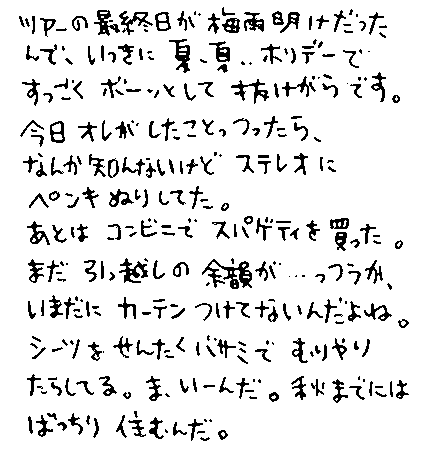 ツアーの最終日が梅雨明けだった
んで、いっきに夏、夏..ホリデーで
すっごくボーッとして抜けがらです。
今日オレがしたことっつったら、
なんか知んないけどステレオに
ペンキぬりしてた。
あとはコンビニでスパゲティを買った。
まだ引っ越しの余韻が…っつうか、
いまだにカーテンつけてないんだよね。
シーツをせんたくバサミでむりやり
たらしてる。ま、いーんだ。秋までには
ばっちり住むんだ。